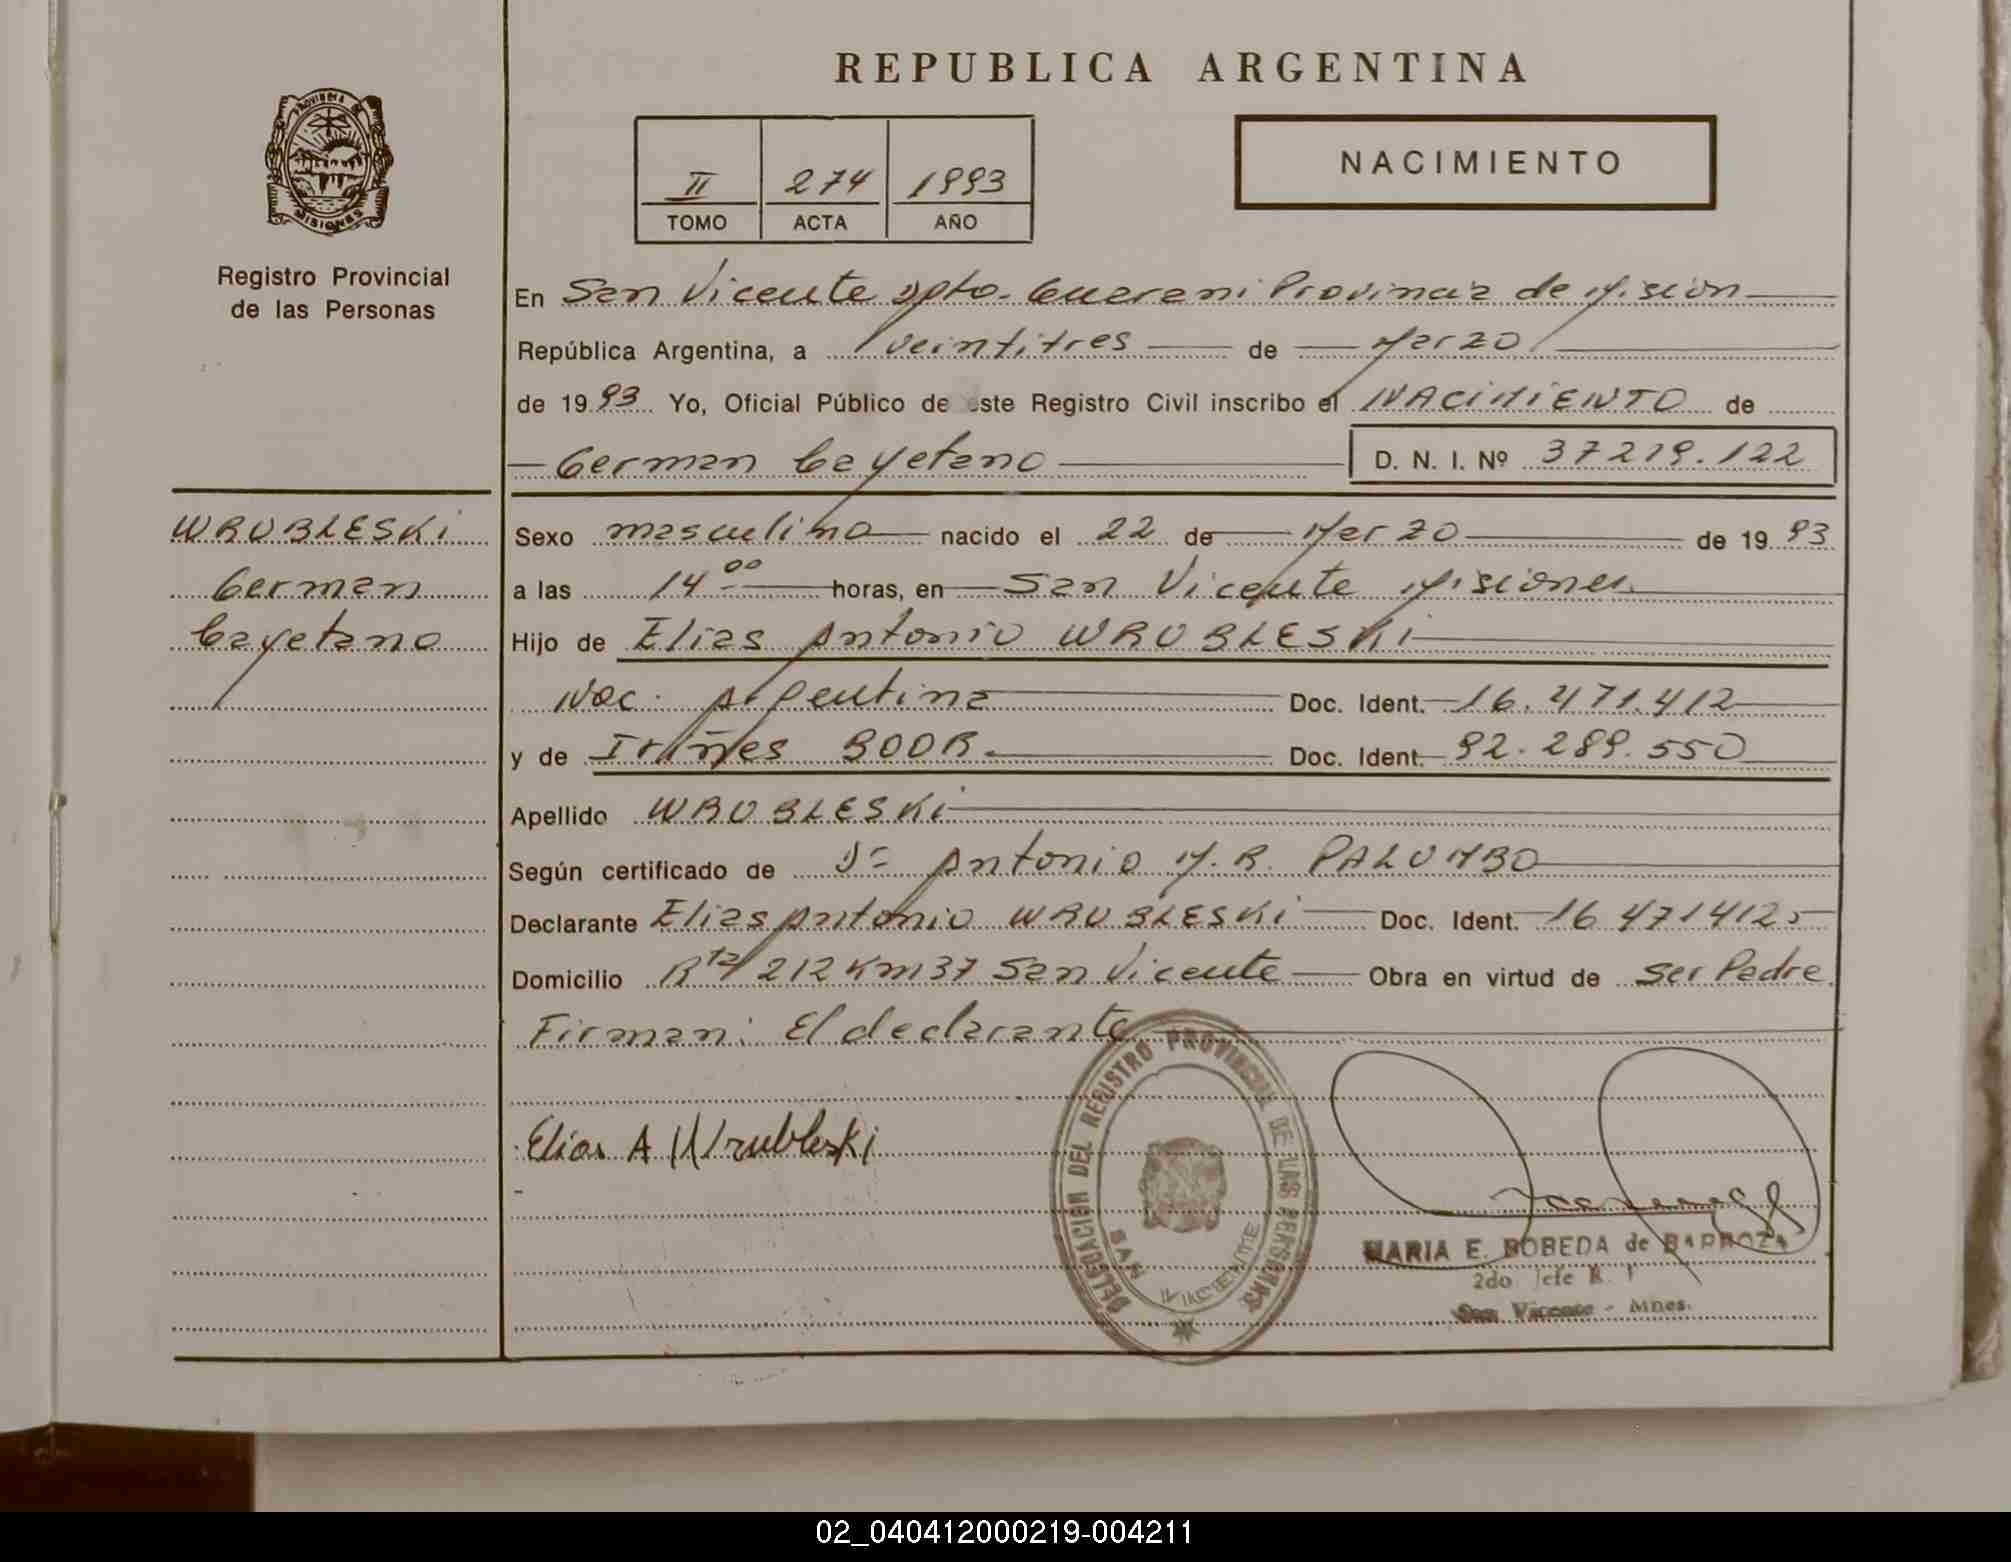 REPUBLICA ARGENTINA
PROVINCIA DE
MISIONES
Registro Provincial
de las Personas
II 274 1993
TOMO ACTA AÑO
NACIMIENTO
En San Vicente Dpto. Guarani Provincia de Mision
República Argentina, a veintitres de Marzo
de 1993 Yo, Oficial Público de este Registro Civil inscribo el NACIMIENTO de
German Cayetano D. N. I. Nº 37219.122
WRUBLESKI
German
Cayetano
Sexo masculino nacido el 22 de Marzo de 1993
a las 14 00 horas, en San Vicente Misiones
Hijo de Elias Antonio WRUBLESKI
Nac. Argentina Doc. Ident. 16.471.412
y de BOOR. Doc. Ident. 92.289.550
Apellido WRUBLESKI
Según certificado de Dr Antonio M. R. PALUMBO
Declarante Elias Antonio WRUBLESKI Doc. Ident. 16 471412
Domicilio Rta 212 Km 37 San Vicente Obra en virtud de Ser Padre
Firman: El declarante
Elias A Wrubleski
DELEGACION DEL REGISTRO PROVINCIAL DE LAS PERSONAS
SAN VICENTE
MARIA E. BOBEDA de BARROZA
2do Jefe R.
San Vicente - Mnes.
02_040412000219-004211